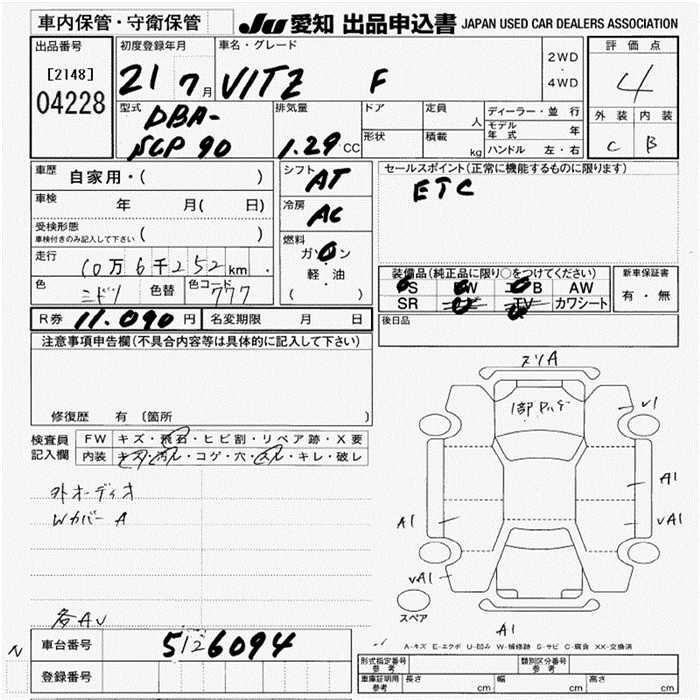 車内保管・守衛保管
JU 愛知 出品申込書 JAPAN USED CAR DEALERS ASSOCIATION
出品番号
[2148]
04228
初度登録年月
21 7月
車名・グレード
VITZ F
2WD
・
4WD
評価点
4
外装 内装
C B
型式
DBA-
SCP90
排気量
1.29 CC
ドア
形状
定員 人
積載 kg
ディーラー・並行
モデル年式 年
ハンドル 左・右
車歴 自家用・( )
車検 年 月( 日)
受検形態
車検付きのみ記入して下さい ( )
走行 10万6千252km
色 ミドリ 色替 色コード 777
シフト AT
冷房 AC
燃料
ガソリン
軽・油
( )
セールスポイント(正常に機能するものに限ります)
ETC
装備品(純正品に限り○をつけてください)
PS PW エアB AW
SR ナビ TV カワシート
新車保証書
有・無
R券 11.090円 名変期限 月 日
後日品
注意事項申告欄(不具合内容等は具体的に記入して下さい)
修復歴 有〔箇所
検査員
記入欄
FW キズ・飛石・ヒビ割・リペア跡・X要
内装 キズ・汚レ・コゲ・穴・スレ・キレ・破レ
外オーディオ
WカバーA
各AU
スリA
V1
A1
A1
vA1
vA1
スペア
A1
N
車台番号 5126094
登録番号
A-キズ E-エクボ U-凹み W-補修跡 S-サビ C-腐食 XX-交換済
形式指定番号
参考
類別区分番号
参考
車庫証明用
参考
長さ cm 幅 cm 高さ cm